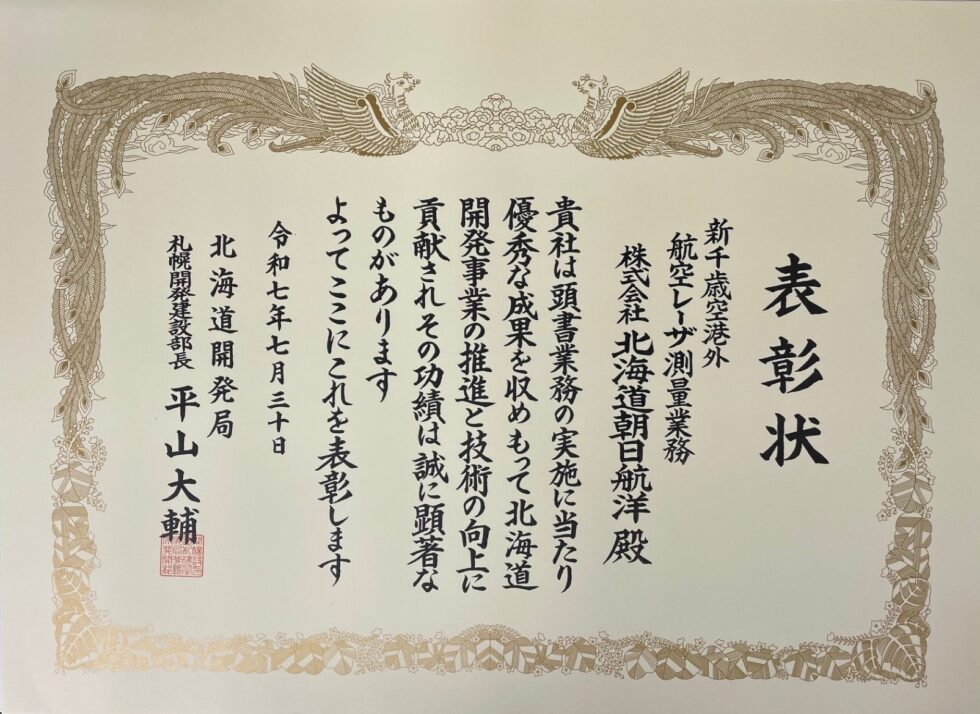 表彰状
新千歳空港外
航空レーザ測量業務
株式会社 北海道朝日航洋 殿
貴社は頭書業務の実施に当たり
優秀な成果を収めもって北海道
開発事業の推進と技術の向上に
貢献されその功績は誠に顕著な
ものがあります
よってここにこれを表彰します
令和七年七月三十日
北海道開発局
札幌開発建設部長 平山大輔